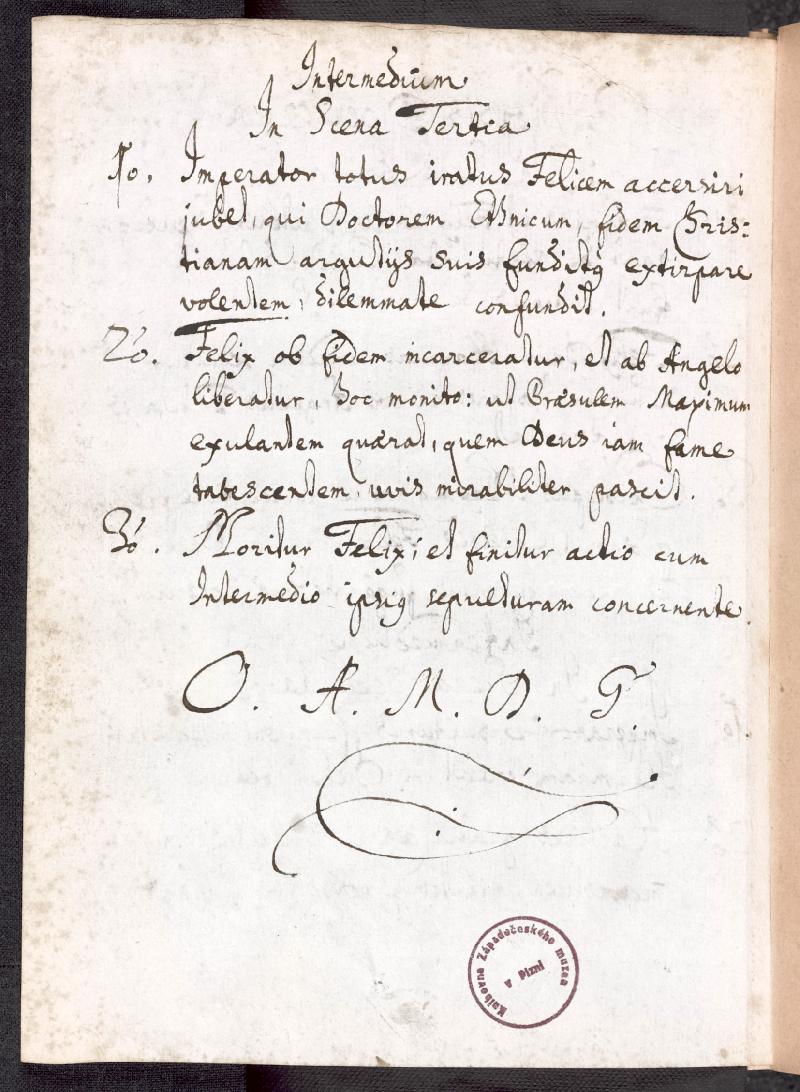 Intermedium
In Scena Tertia
1o. Imperator totus iratus Felicem accersiri
jubet, qui Doctorem Ethnicum, fidem Chris:
tianam argutijs suis funditq extirpare
volentem, dilemmate confundit.
2o. Felix ob fidem incarceratur, et ab Angelo
liberatur, hoc monito: ut Præsulem Maximum
exulantem quærat, quem Deus iam fame
tabescentem, uvis mirabiliter pascit.
3o. Moritur Felix, et finitur actio cum
Intermedio ipsiq sepulturam concernente.
O. A. M. D. G.
Knihovna Západočeského muzea
v Plzni